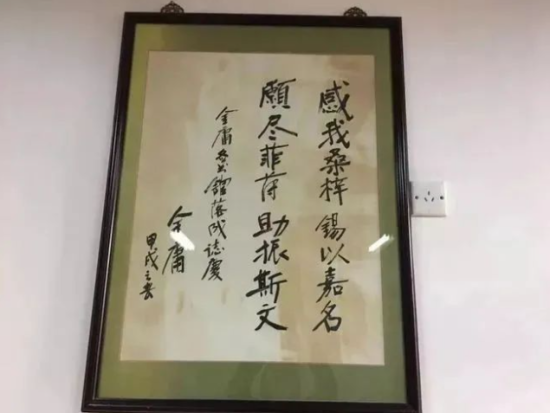 感我桑梓 锡以嘉名
願尽菲葑 助振斯文
金庸圖書館落成誌慶
金庸
甲戌之春